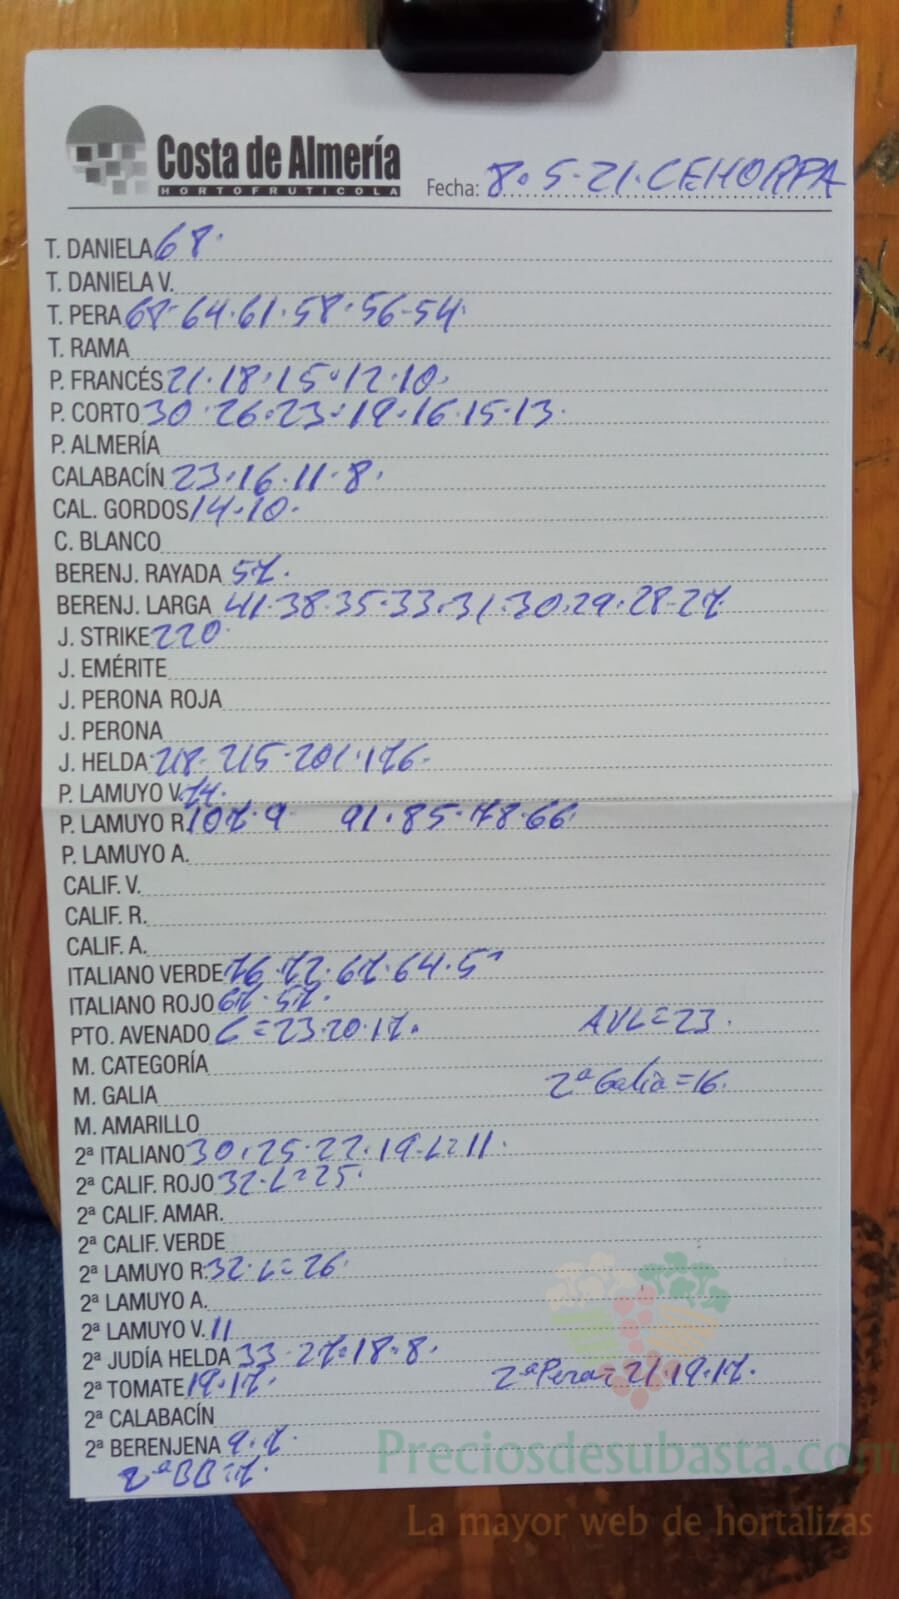 Costa de Almería
HORTOFRUTICOLA
Fecha: 8.5.21. CEHORPA
T. DANIELA 68.
T. DANIELA V.
T. PERA 68-64.61.58.56-54.
T. RAMA
P. FRANCÉS 21.18.15.12.10.
P. CORTO 30.26.23.19.16.15.13.
P. ALMERÍA
CALABACÍN 23.16.11.8.
CAL. GORDOS 14.10.
C. BLANCO
BERENJ. RAYADA 57.
BERENJ. LARGA 41.38.35.33.31.30.29.28-27
J. STRIKE 220.
J. EMÉRITE
J. PERONA ROJA
J. PERONA
J. HELDA 218-215-201.176.
P. LAMUYO V. 74.
P. LAMUYO R. 107.9 91.85-78.66.
P. LAMUYO A.
CALIF. V.
CALIF. R.
CALIF. A.
ITALIANO VERDE 76.72.67.64.
ITALIANO ROJO 67.57.
PTO. AVENADO C=23.20.17. AVL=23.
M. CATEGORÍA
M. GALIA 2ª Galia=16.
M. AMARILLO
2ª ITALIANO 30.25.22.19-L=11.
2ª CALIF. ROJO 32-L=25.
2ª CALIF. AMAR.
2ª CALIF. VERDE
2ª LAMUYO R. 32-L=26.
2ª LAMUYO A.
2ª LAMUYO V. 11
2ª JUDÍA HELDA 33-27.18.8.
2ª TOMATE 19.17. 2ª Pera=21.19.17.
2ª CALABACÍN
2ª BERENJENA 9.7.
2ª BB=7.
Preciosdesubasta.com
La mayor web de hortalizas